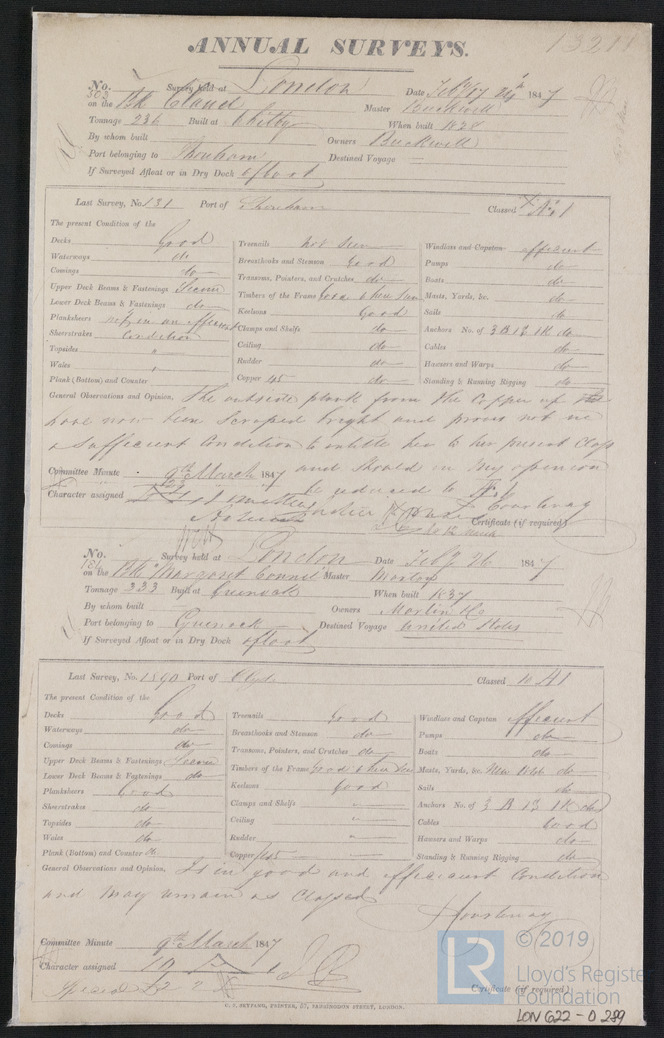 ANNUAL SURVEYS.
No. 303 Survey held at London Date Feby 24th 1847
on the Bk Cland Master Buckwell
Tonnage 236 Built at Whitby When built 1828
By whom built Owners Buckwell
Port belonging to Shoreham Destined Voyage
If Surveyed Afloat or in Dry Dock afloat
Last Survey, No. 131 Port of Shoreham Classed Æ1
The present Condition of the
Decks Good Treenails not seen Windlass and Capstan efficient
Waterways do Breasthooks and Stemson Good Pumps do
Comings do Transoms, Pointers, and Crutches do Boats do
Upper Deck Beams & Fastenings Secure Timbers of the Frame Good where seen Masts, Yards, &c. do
Lower Deck Beams & Fastenings do Keelsons Good Sails do
Planksheers not in an efficient Clamps and Shelfs do Anchors No. of 3 B 1 S 1 K do
Sheerstrakes Condition Ceiling do Cables do
Topsides " Rudder do Hawsers and Warps do
Wales " Copper 45 do Standing & Running Rigging do
Plank (Bottom) and Counter
General Observations and Opinion, The outside plank from the Copper up
have now been scraped bright and proves not in
a sufficient Condition to entitle her to her present Class
Committee Minute 9th March 1847 and should in my opinion
Character assigned be reduced to Courtenay
Certificate (if required)
No. 186 Survey held at London Date Feby 26 1847
on the Bk Margaret Connel Master Morley
Tonnage 233 Built at Greenock When built 1837
By whom built Owners Martin & Co
Port belonging to Greenock Destined Voyage United States
If Surveyed Afloat or in Dry Dock afloat
Last Survey, No. 1590 Port of Clyde Classed 10 A1
The present Condition of the
Decks Good Treenails Good Windlass and Capstan efficient
Waterways do Breasthooks and Stemson do Pumps do
Comings do Transoms, Pointers, and Crutches do Boats do
Upper Deck Beams & Fastenings Secure Timbers of the Frame Good where seen Masts, Yards, &c. do
Lower Deck Beams & Fastenings do Keelsons Good Sails do
Planksheers Good Clamps and Shelfs " Anchors No. of 3 B 1 S 1 K do
Sheerstrakes do Ceiling " Cables Good
Topsides do Rudder " Hawsers and Warps do
Wales do Copper /45 Standing & Running Rigging do
Plank (Bottom) and Counter do
General Observations and Opinion, Is in good and efficient Condition
and may remain as Classed
Courtenay
Committee Minute 9th March 1847
Character assigned 10 A 1
Special £2 2 Certificate (if required)
LR © 2019
Lloyd's Register
Foundation
LON 622-0289